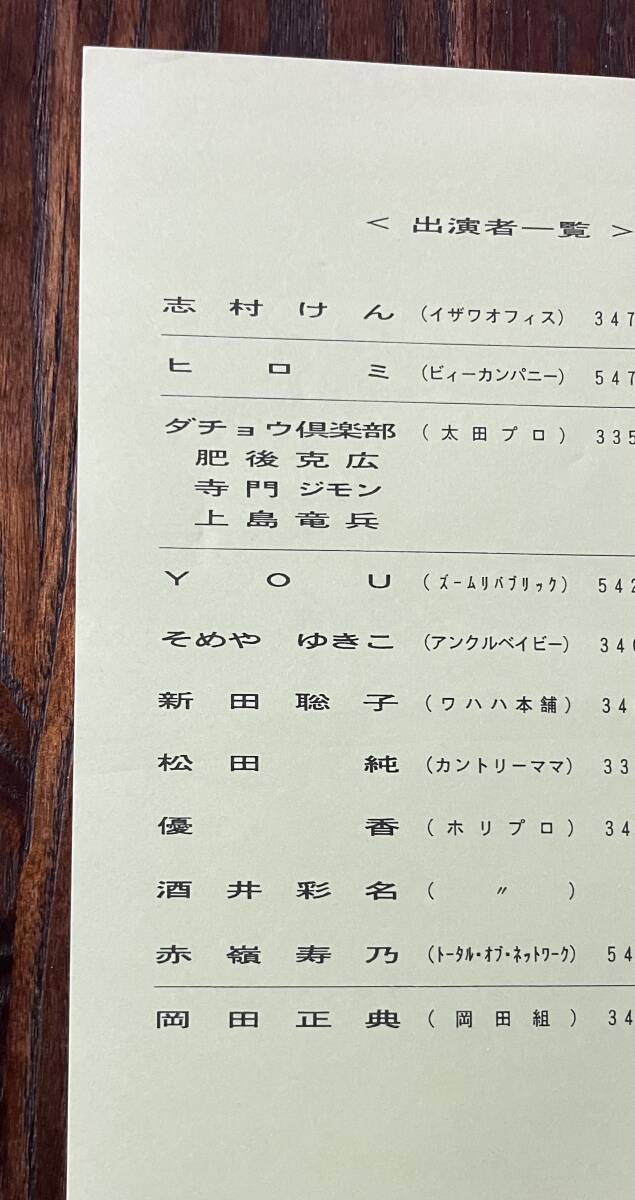 < 出演者一覧 >
志村けん (イザワオフィス) 347
ヒロミ (ビィーカンパニー) 547
ダチョウ倶楽部 (太田プロ) 335
肥後克広
寺門ジモン
上島竜兵
YOU (ズームリパブリック) 542
そめや ゆきこ (アンクルベイビー) 346
新田聡子 (ワハハ本舗) 34
松田純 (カントリーママ) 33
優香 (ホリプロ) 34
酒井彩名 ( 〃 )
赤嶺寿乃 (トータル・オブ・ネットワーク) 54
岡田正典 (岡田組) 34